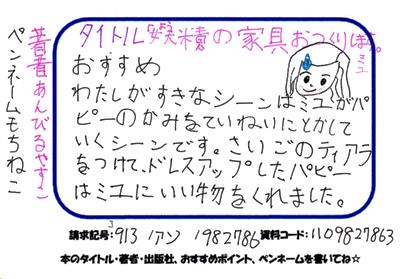 タイトル「髪の精の家具おつくります。」
おすすめ
わたしがすきなシーンはミユがパ
ピーのかみをていねいにとかして
いくシーンです。さいごのティアラ
をつけて、ドレスアップしたパピー
はミユにいい物をくれました。
ミユ
著者あんびるやすこ
ペンネームもちねこ
請求記号:913 アン 1982786 資料コード:1109827863
本のタイトル・著者・出版社、おすすめポイント、ペンネームを書いてね☆